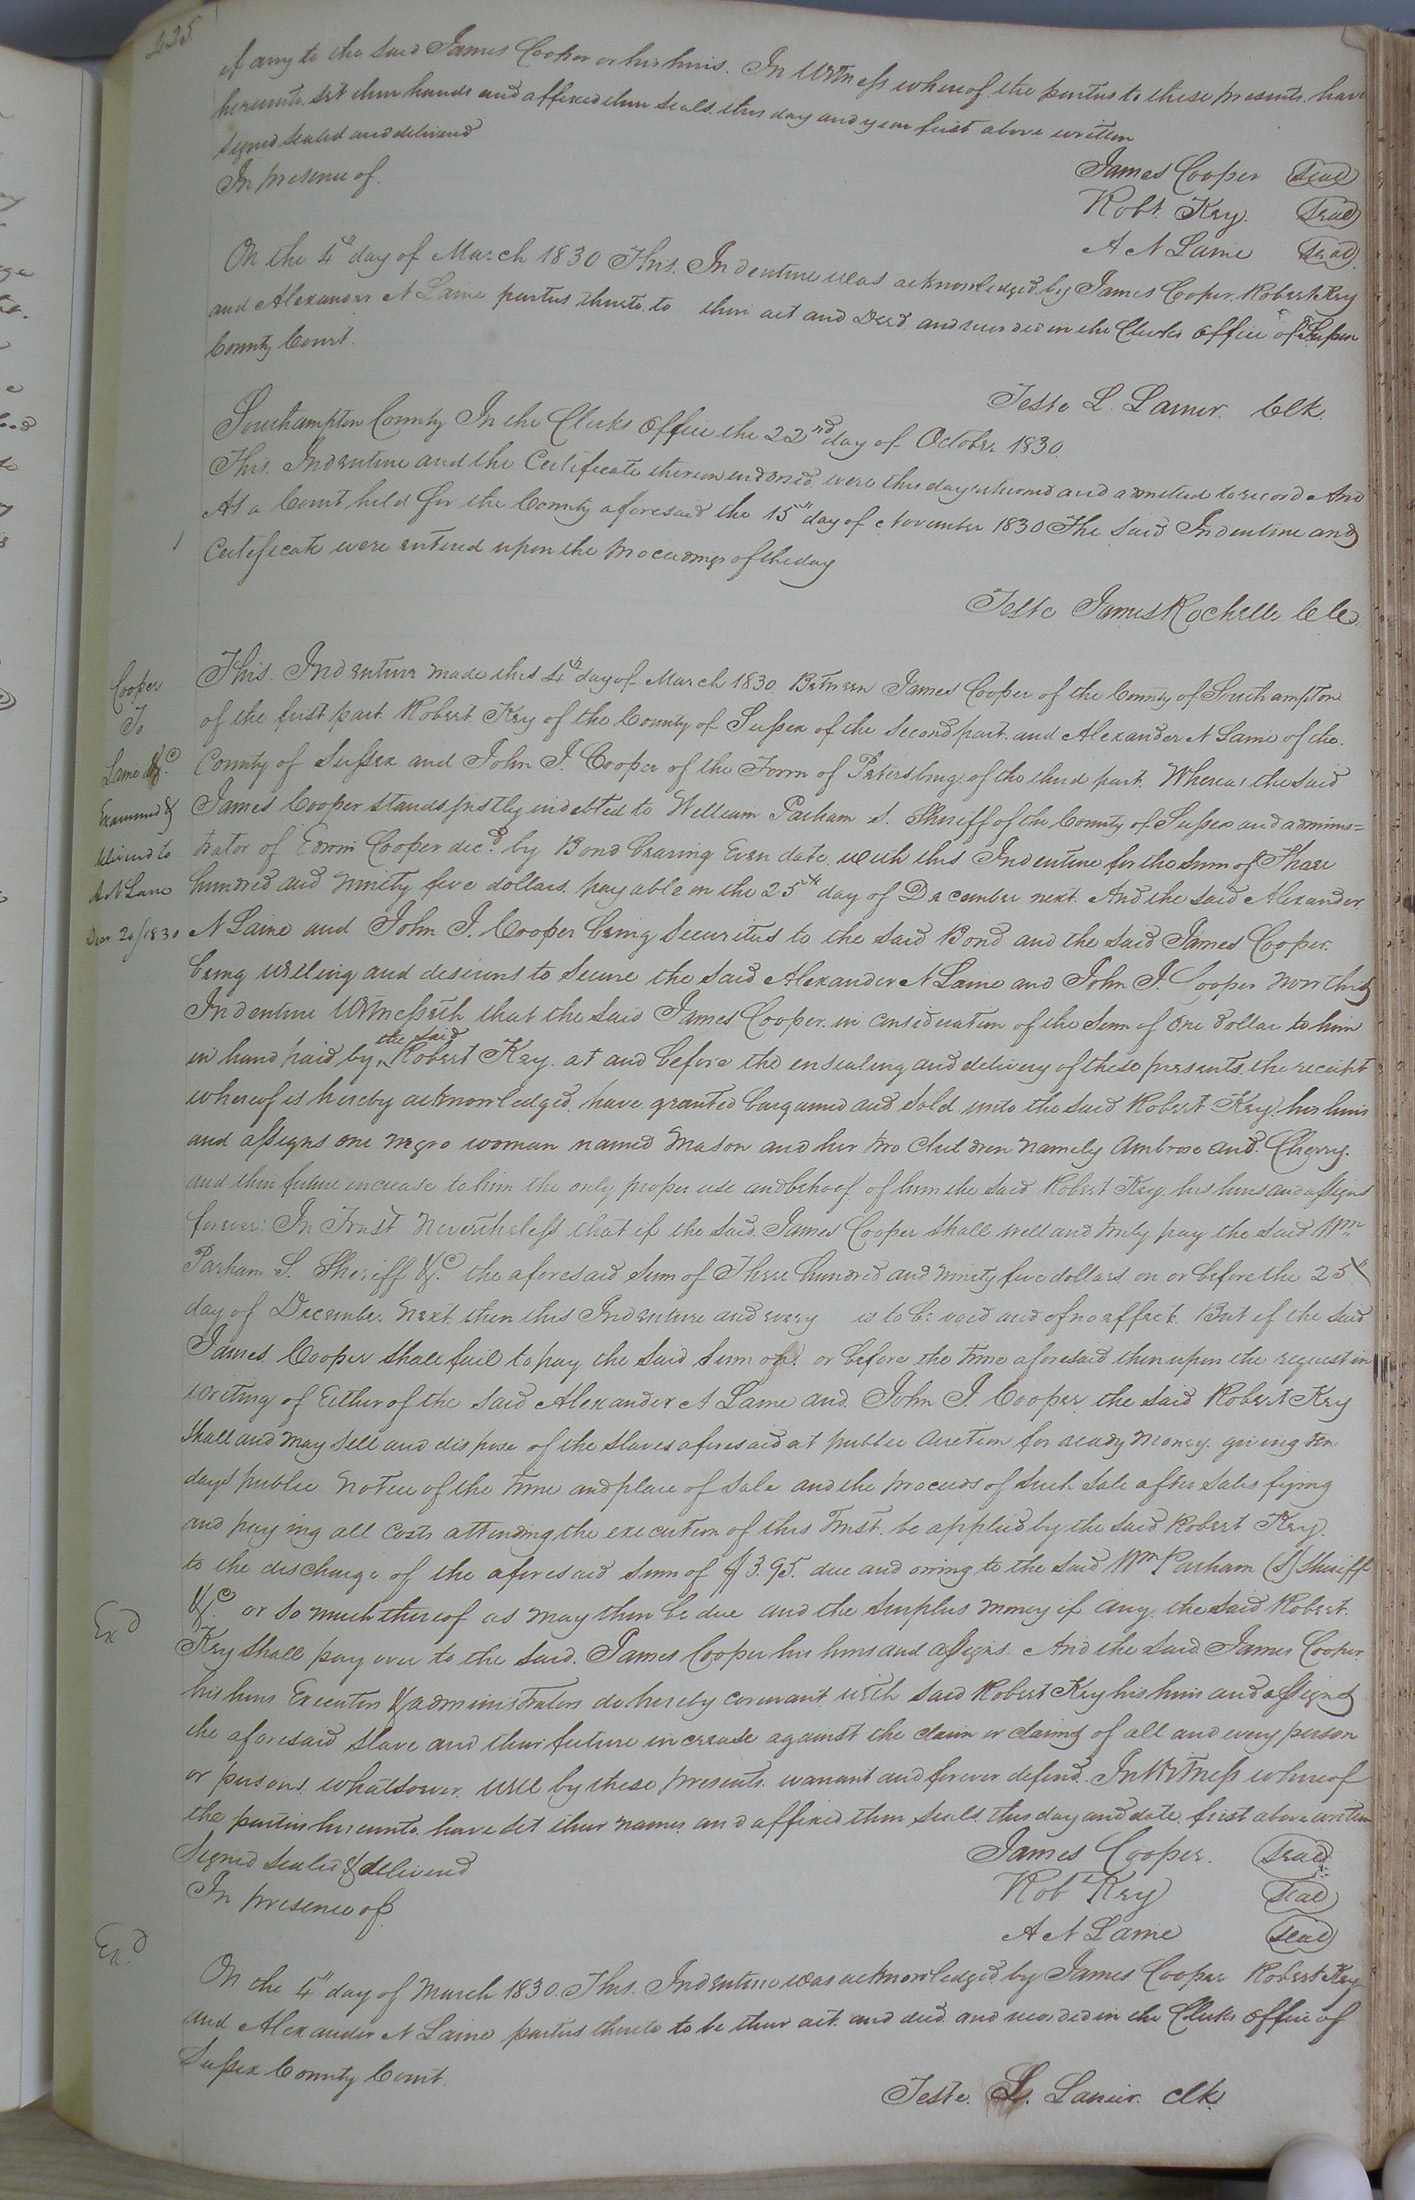 425
if any to the said James Cooper or his heirs. In Witness whereof the parties to these presents have
hereunto set their hands and affixed their seals this day and year first above written
Signed Sealed and delivered
In presence of.
James Cooper Seal
Robt. Key. Seal
A N Laine Seal
On the 4th day of March 1830 This Indenture was acknowledged by James Cooper Robert Key
and Alexander N Laine parties thereto, to their act and Deed and recorded in the Clerks office of Sussex
County Court.
Teste L. Lanier. Clk.
Southampton County In the Clerks office the 22nd day of October 1830
This. Indenture and the Certificate thereon endorsed were this day returned and admitted to record And
At a Court held for the County aforesaid the 15th day of November 1830 The said Indenture and
Certificate were entered upon the proceedings of the day
Teste James Rochelle Clk
Cooper
To
Laine &c.
Examined &
delivered to
A N Laine
Decr 20/1830
This. Indenture made this 4th day of March 1830 Between James Cooper of the County of Southampton
of the first part. Robert Key of the County of Sussex of the Second part. and Alexander N Laine of the.
County of Sussex and John J. Cooper of the Town of Petersburg of the third part. Whereas the said
James Cooper stands justly indebted to William Parham S. Sheriff of the County of Sussex and adminis=
trator of Edwin Cooper decd. by Bond bearing Even date with this Indenture for the Sum of Three
hundred and ninety five dollars payable on the 25th day of December next. And the said Alexander
N Laine and John J. Cooper being Securities to the said Bond and the said James Cooper.
being willing and desirous to Secure the said Alexander N Laine and John J. Cooper Now this
Indenture Witnesseth that the said James Cooper in consideration of the Sum of one dollar to him
in hand paid by the said Robert Key. at and before the ensealing and delivery of these presents the receipt
whereof is hereby acknowledged. have granted bargained and Sold unto the said Robert Key his heirs
and assigns one negro woman named Mason and her two Children namely Ambrose and Cherry.
and their future increase to him the only proper use and behoof of him the said Robert Key his heirs and assigns
forever: In Trust Nevertheless that if the said James Cooper Shall well and truly pay the said Wm
Parham S. Sheriff &c. the aforesaid Sum of Three hundred and ninety five dollars on or before the 25th
day of December Next. then this Indenture and every is to be void and of no affect. But if the said
James Cooper shall fail to pay the said Sum of or before the time aforesaid then upon the request in
writing of Either of the said Alexander N Laine and John J. Cooper the said Robert Key
Shall and may Sell and dispose of the Slaves aforesaid at public Auction for ready Money. giving ten
days public Notice of the time and place of Sale and the proceeds of Such Sale after Satisfying
and paying all costs attending the execution of this Trust. be applied by the said Robert Key.
to the discharge of the aforesaid Sum of $3.95. due and owing to the said Wm Parham (S) Sheriff
&c. or so much thereof as may then be due and the Surplus money if any. the said Robert.
Exd
Key shall pay over to the said. James Cooper his heirs and assigns. And the said James Cooper
his heirs Executors & administrators do hereby covenant with said Robert Key his heirs and assigns
the aforesaid Slave and their future increase against the claim or claims of all and every person
or persons whatsoever. Will by these presents. warrant and forever defend. In Witness whereof
the parties hereunto have set their names and affixed their Seals this day and date first above written
Signed Sealed & delivered
In presence of
James Cooper. Seal
Robt Key Seal
A N Laine Seal
Exd.
On the 4th day of March 1830. This. Indenture was acknowledged by James Cooper Robert Key
and Alexander N Laine parties thereto to be their act. and deed. and recorded in the Clerks office of
Sussex County Court.
Teste. L. Lanier. Clk.